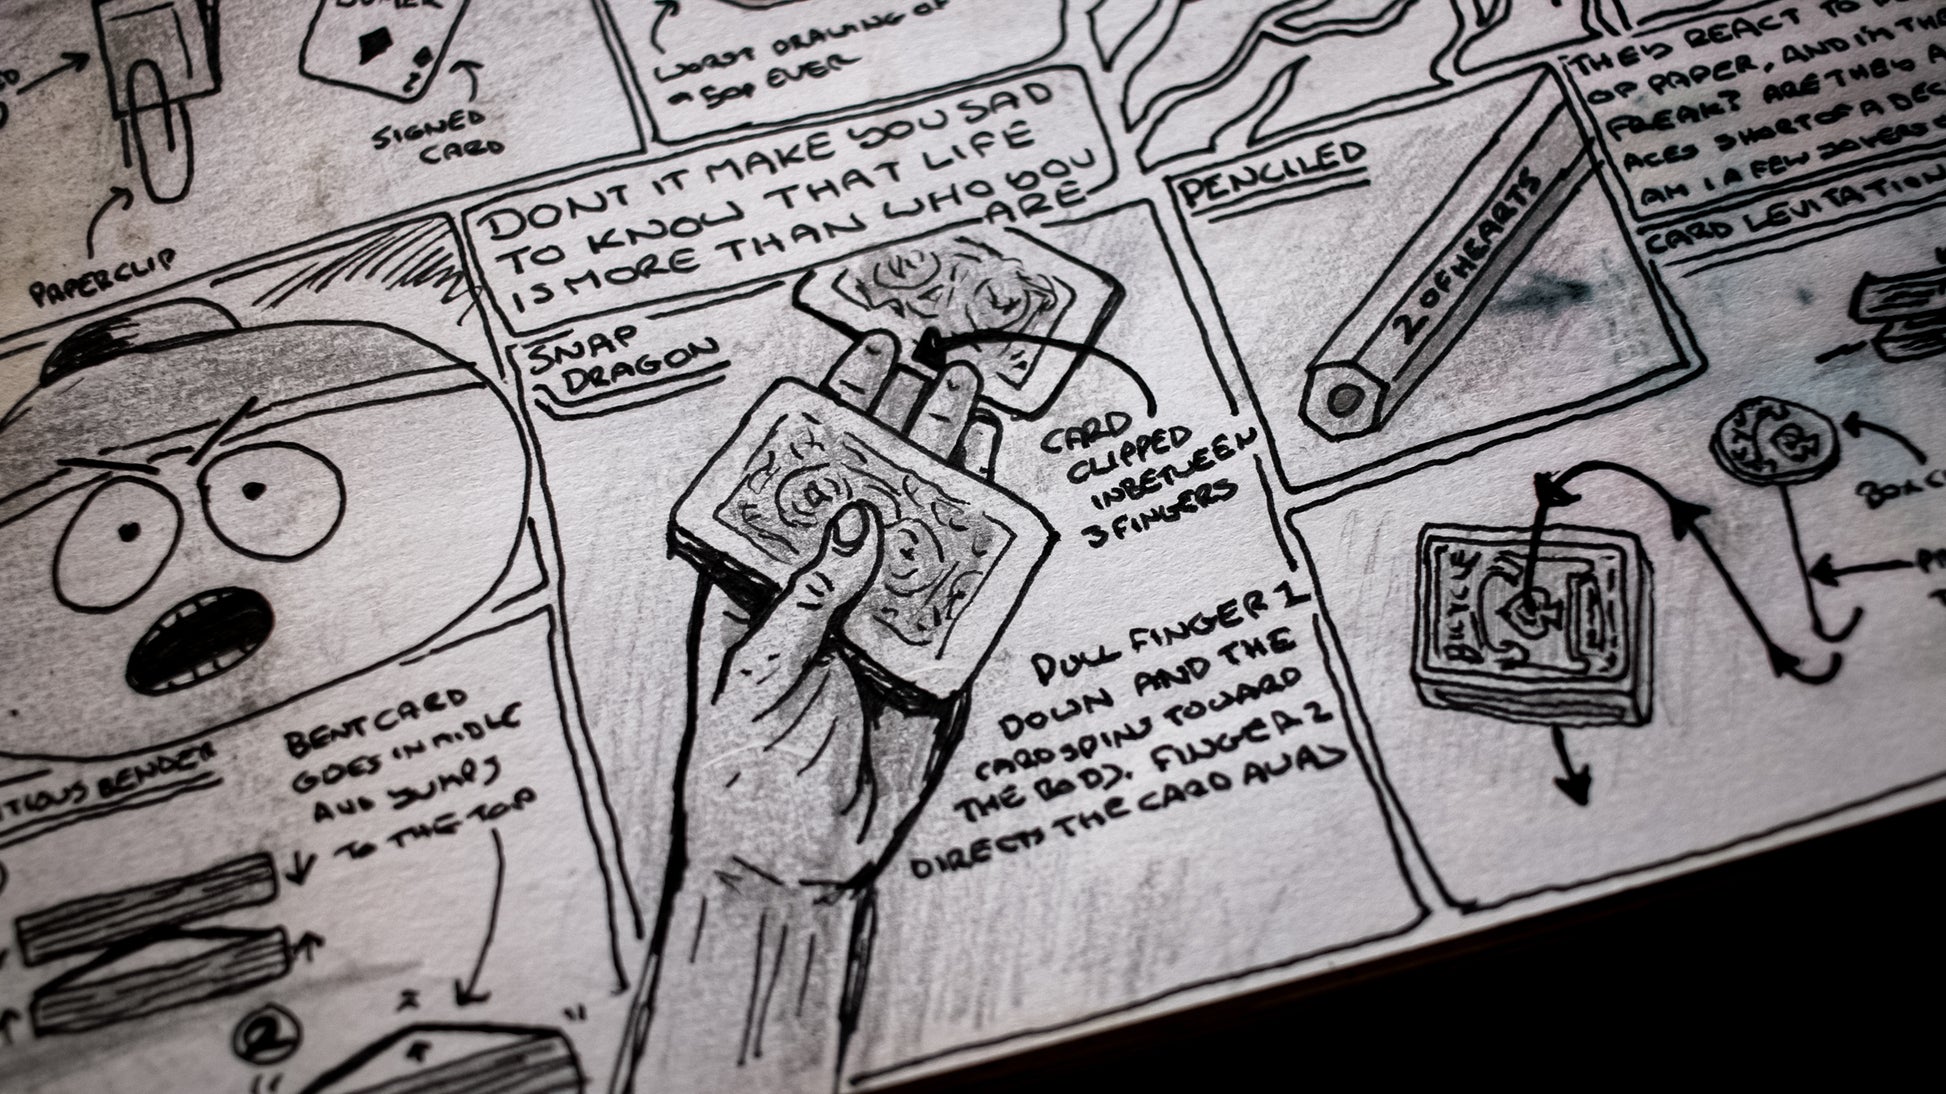 SIGNED
CARD
PAPERCLIP
WORST DRAWING OF
A 50P EVER
DONT IT MAKE YOU SAD
TO KNOW THAT LIFE
IS MORE THAN WHO YOU
ARE
SNAP
DRAGON
CARD
CLIPPED
INBETWEEN
3 FINGERS
PULL FINGER 1
DOWN AND THE
CARD SPINS TOWARD
THE BODY. FINGER 2
DIRECTS THE CARD AWAY
PENCILED
2 OF HEARTS
THEY REACT TO
OF PAPER, AND I'M THE
FREAK? ARE THEY A
ACES SHORT OF A DEC
AM I A FEW JOKERS
CARD LEVITATION
BOX
BICYCLE
BENDER
BENT CARD
GOES IN MIDLE
AND JUMPS
TO THE TOP
2